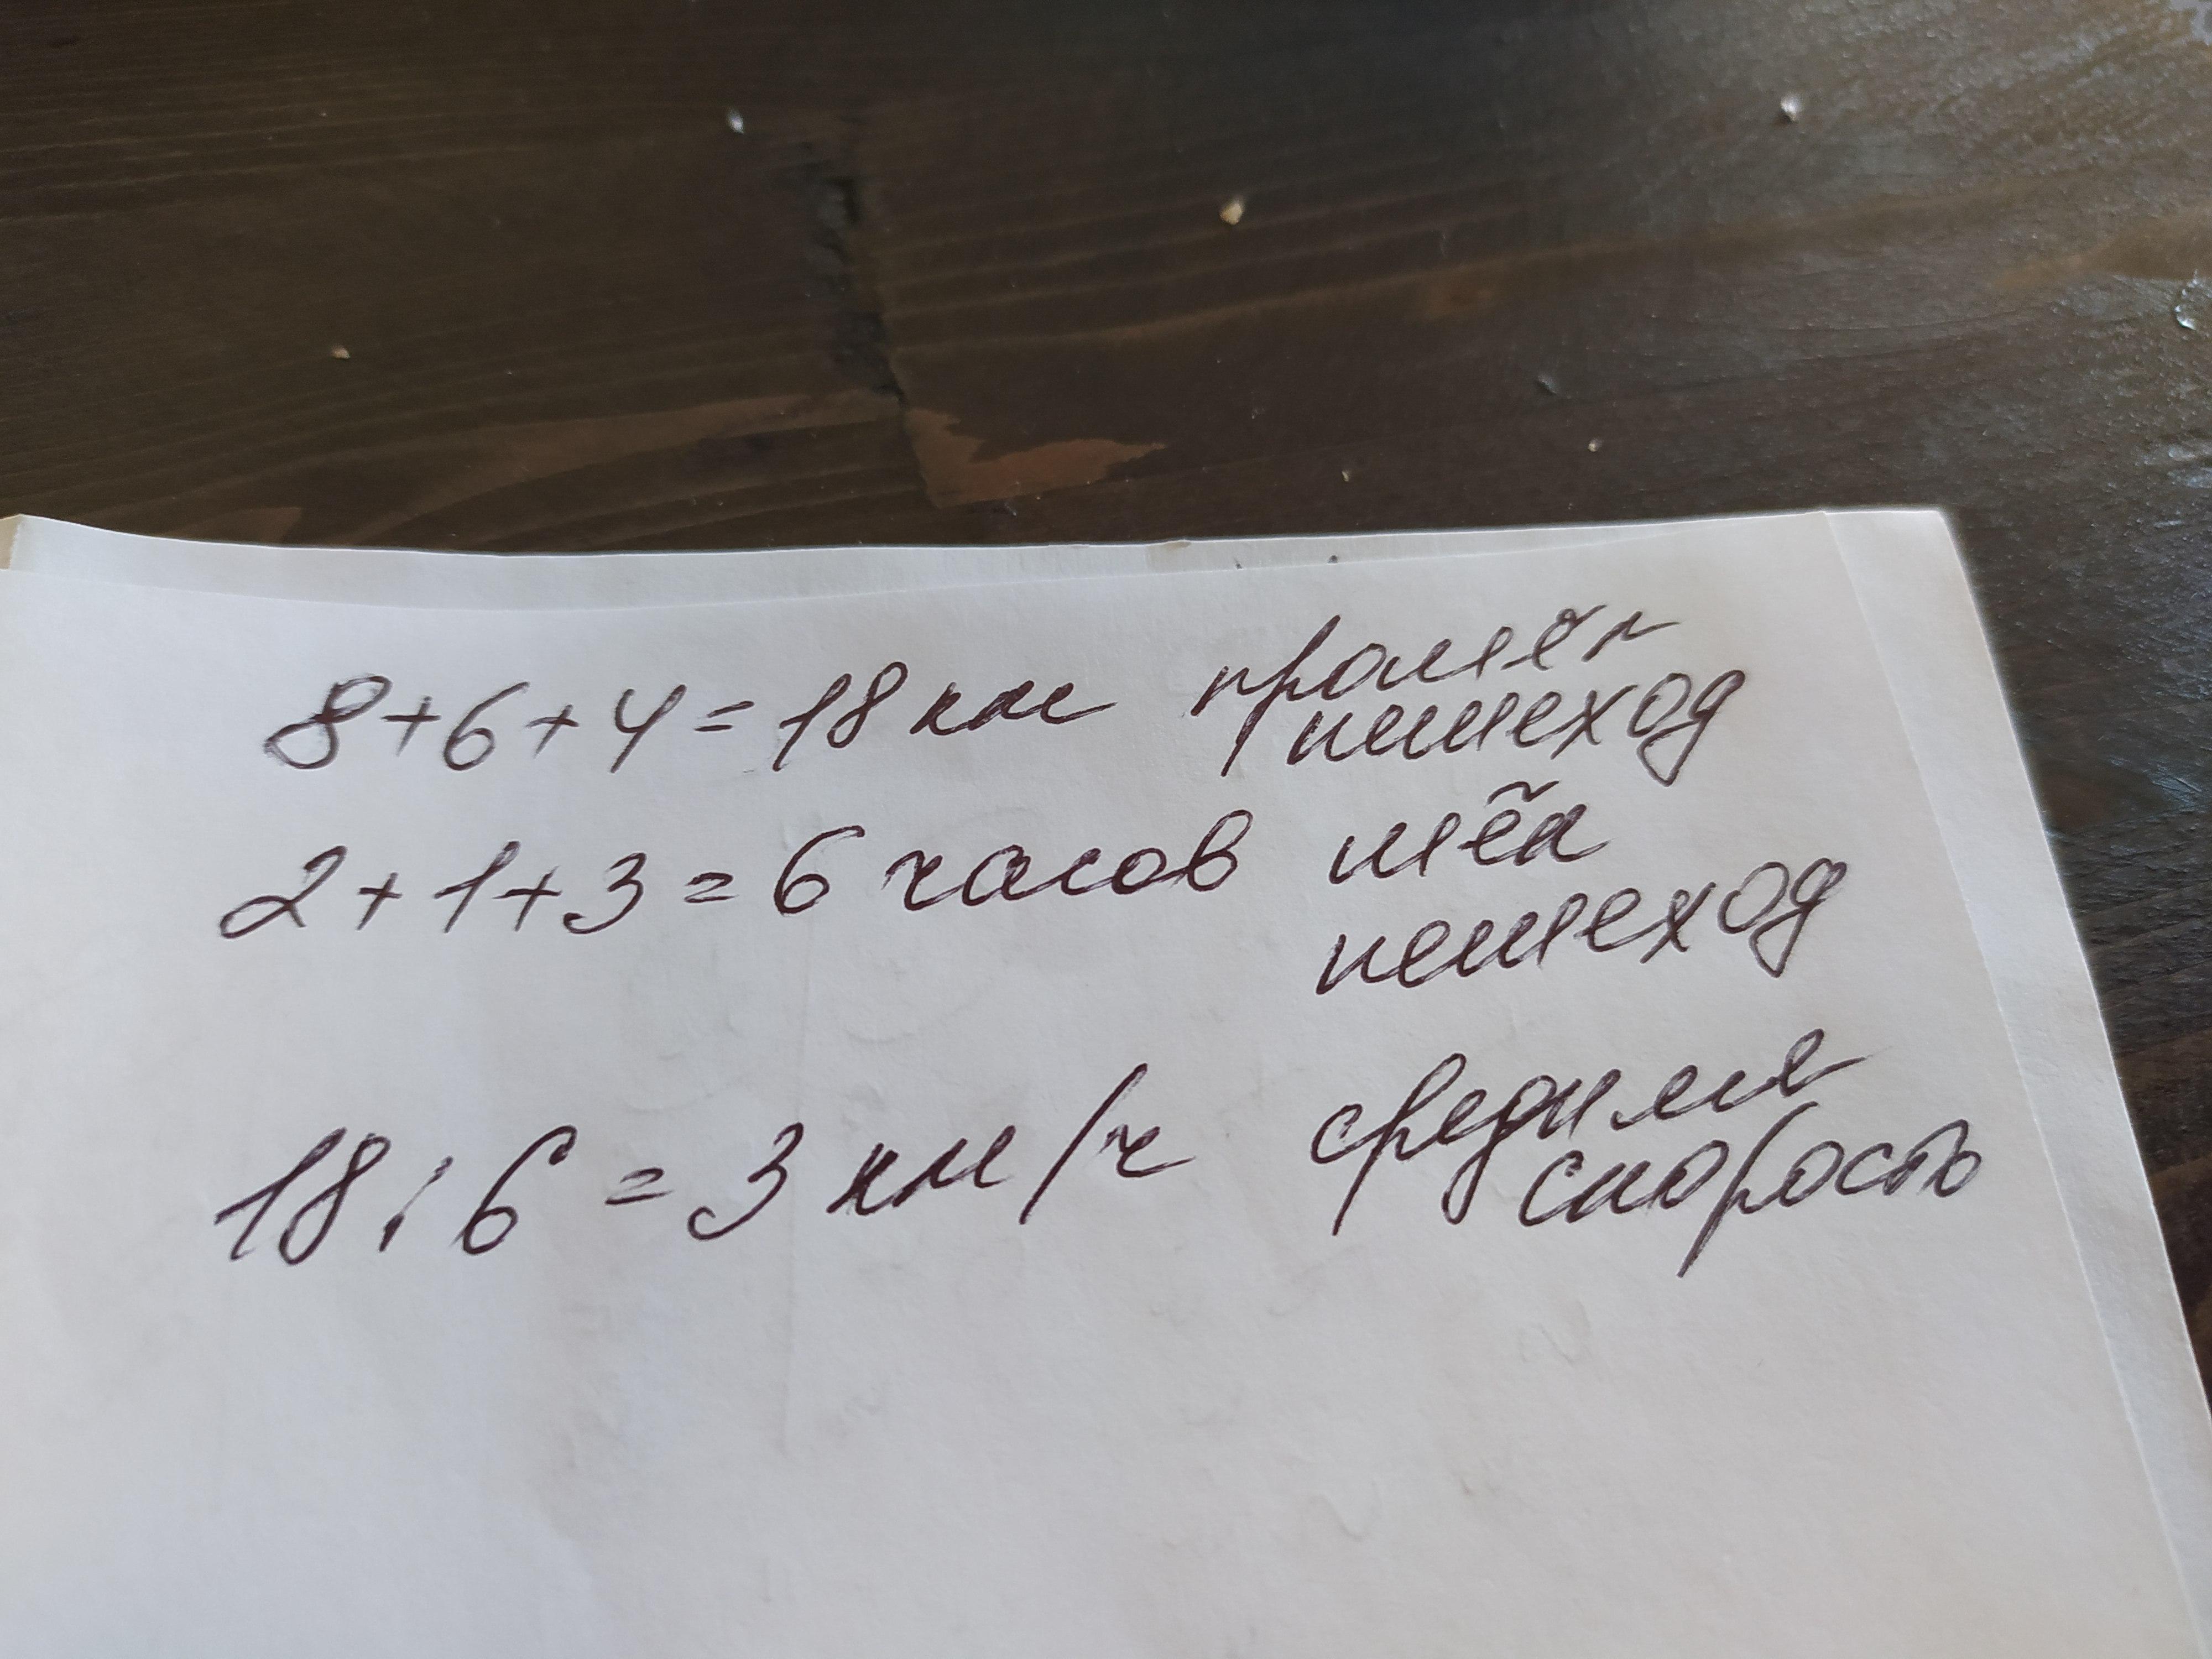 8+6+4=18 км прошёл
пешеход
2+1+3=6 часов шёл
пешеход
18:6=3 км/ч средняя
скорость